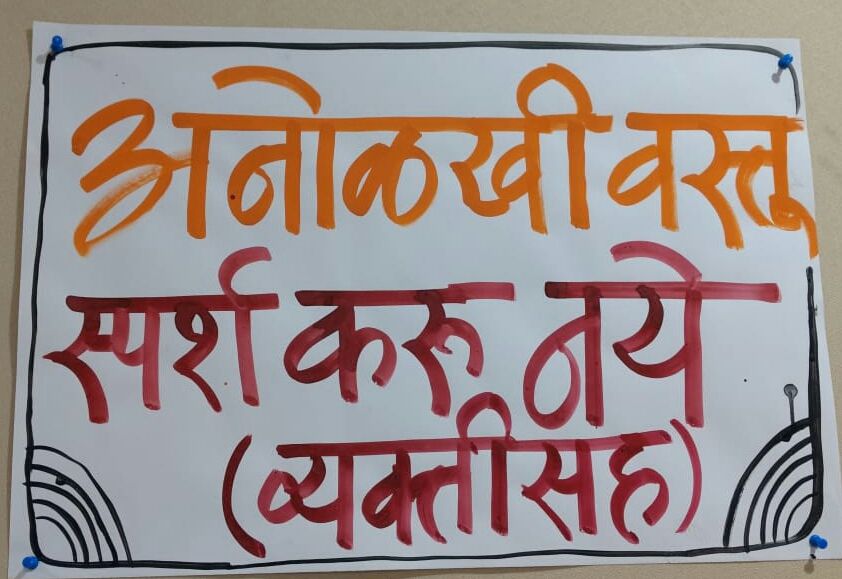 अनोळखी वस्तू
स्पर्श करू नये
(व्यक्तीसह)